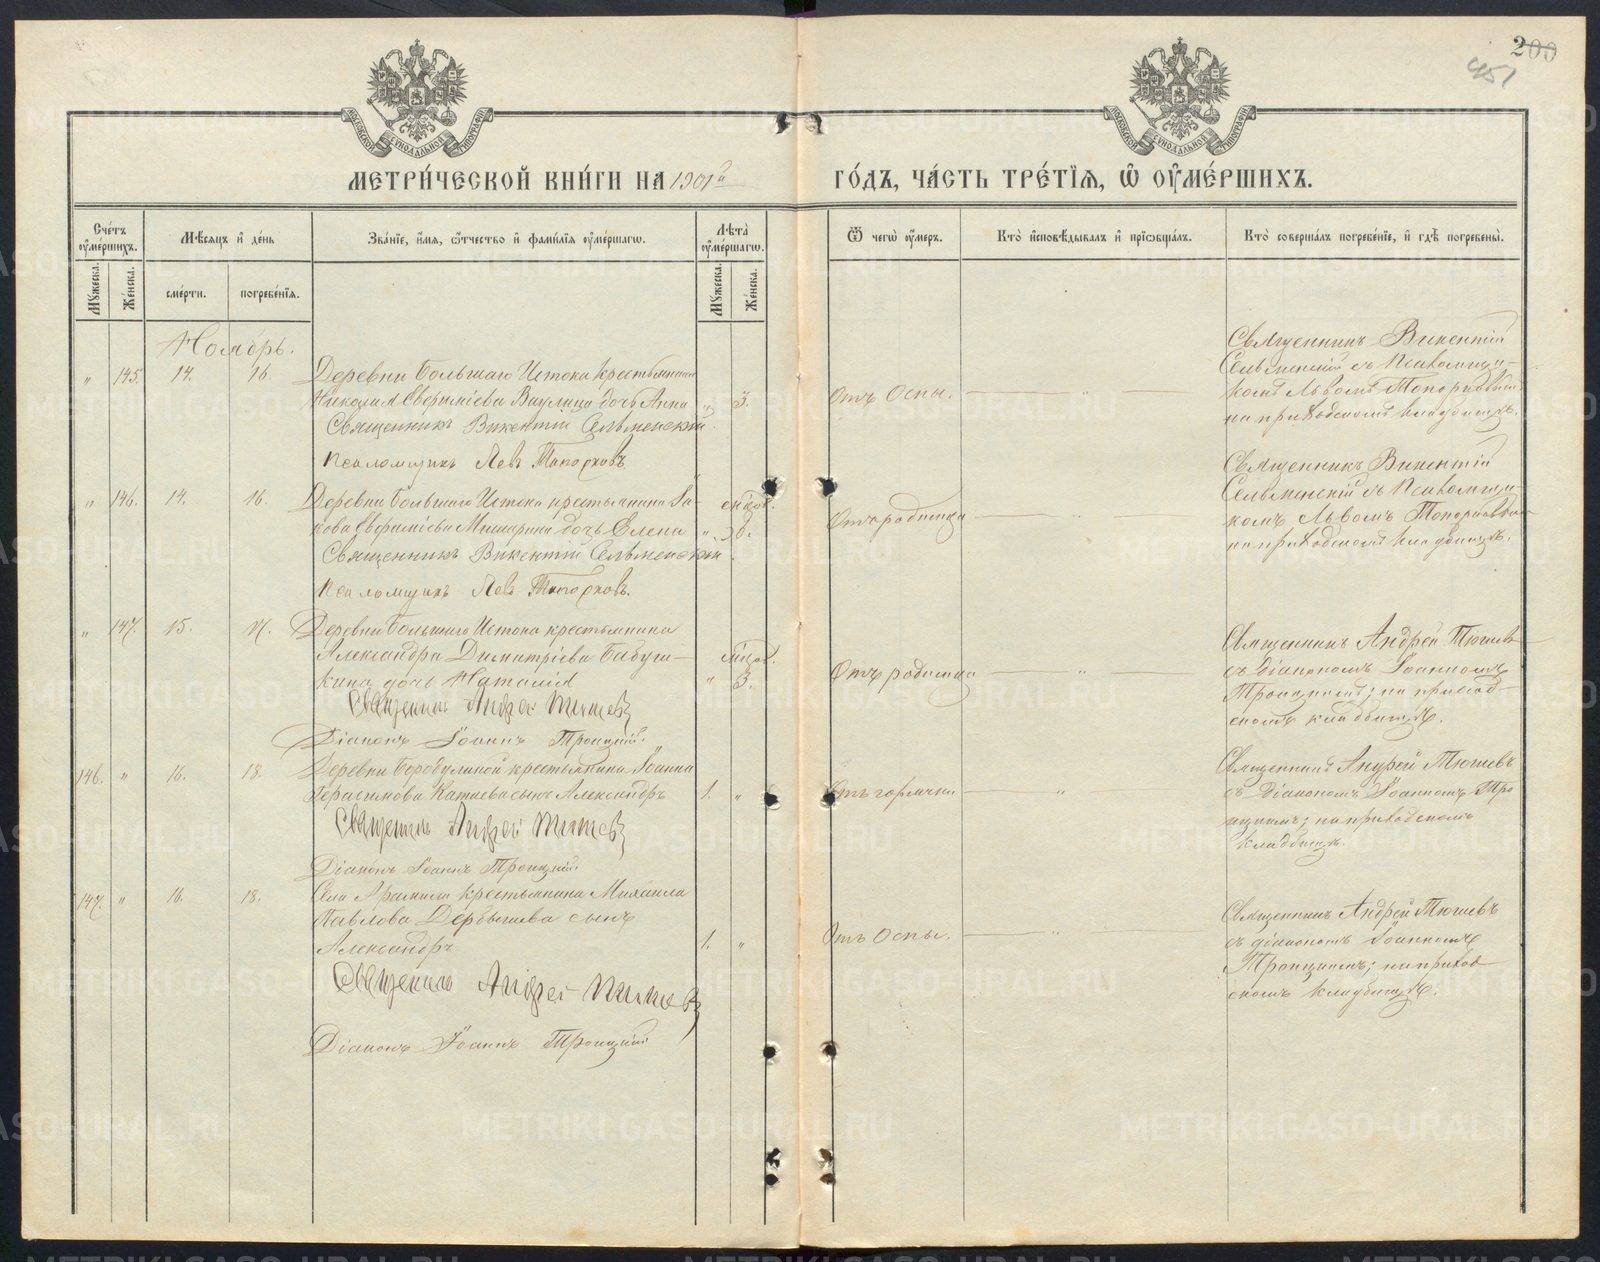 200
451
МОСКОВСКОЙ СѴНОДАЛЬНОЙ ТИПОГРАФІИ
МОСКОВСКОЙ СѴНОДАЛЬНОЙ ТИПОГРАФІИ
МЕТРИ́ЧЕСКОЙ КНИ́ГИ НА 1901й
ГО́ДЪ, ЧА́СТЬ ТРЕ́ТІѦ, Ѡ ОУ҆МЕ́РШИХЪ.
Сче́тъ оу҆ме́ршихъ.
Мѣ́сяцъ и҆ де́нь
Зва́нїе, и҆́мя, ѻ҆́тчество и҆ фами́лїя оу҆ме́ршагѡ.
Лѣ́та оу҆ме́ршагѡ.
Ѿ чегѡ̀ оу҆́меръ.
Кто̀ и҆сповѣ́дывалъ и҆ прїѡбща́лъ.
Кто̀ соверша́лъ погребе́нїе, и҆ гдѣ̀ погребены̀.
Мꙋ́жеска.
Же́нска.
сме́рти.
погребе́нїя.
Мꙋ́жеска.
Же́нска.
Ноябрь.
" 145. 14. 16. Деревни Большаго Истока крестьянина
Николая Ефимиева Ваулина дочь Анна " 3.
Священникъ Викентій Сельменскій
Псаломщикъ Левъ Топорковъ
Отъ Оспы. "
Священникъ Викентій
Сельменскій съ Псаломщи-
комъ Львомъ Топорковым
на приходскомъ кладбищѣ.
" 146. 14. 16. Деревни Большаго Истока крестьянина Іа-
кова Ефимиева Мишарина дочь Елена "
Священникъ Викентій Сельменскій
Псаломщикъ Левъ Топорковъ.
Отъ родимца "
Священникъ Викентій
Сельменскій съ Псаломщи-
комъ Львомъ Топорковым
на приходскомъ кладбищѣ.
" 147. 15. 17. Деревни Большаго Истока крестьянина
Александра Димитріева Бабуш-
кина дочь Наталія " 3.
Священникъ Андрей Тюшевъ
Діаконъ Іоаннъ Троицкій.
Отъ родимца "
Священникъ Андрей Тюшевъ
съ діакономъ Іоанномъ
Троицкимъ; на приход-
скомъ кладбищѣ.
146. " 16. 18. Деревни Бородулиной крестьянина Іоанна
Герасимова Катаева сынъ Александръ 1. "
Священникъ Андрей Тюшевъ
Діаконъ Іоаннъ Троицкій.
Отъ горячки "
Священникъ Андрей Тюшевъ
съ Діакономъ Іоанномъ Тро
ицкимъ; на приходскомъ
кладбищѣ.
147. " 16. 18. Села Арамили крестьянина Михаила
Павлова Дербышева сынъ
Александръ 1. "
Священникъ Андрей Тюшевъ
Діаконъ Іоаннъ Троицкій
Отъ Оспы. "
Священникъ Андрей Тюшевъ
съ діакономъ Іоанномъ
Троицкимъ; на приход
скомъ кладбищѣ.
METRIKI.GASO-URAL.RU